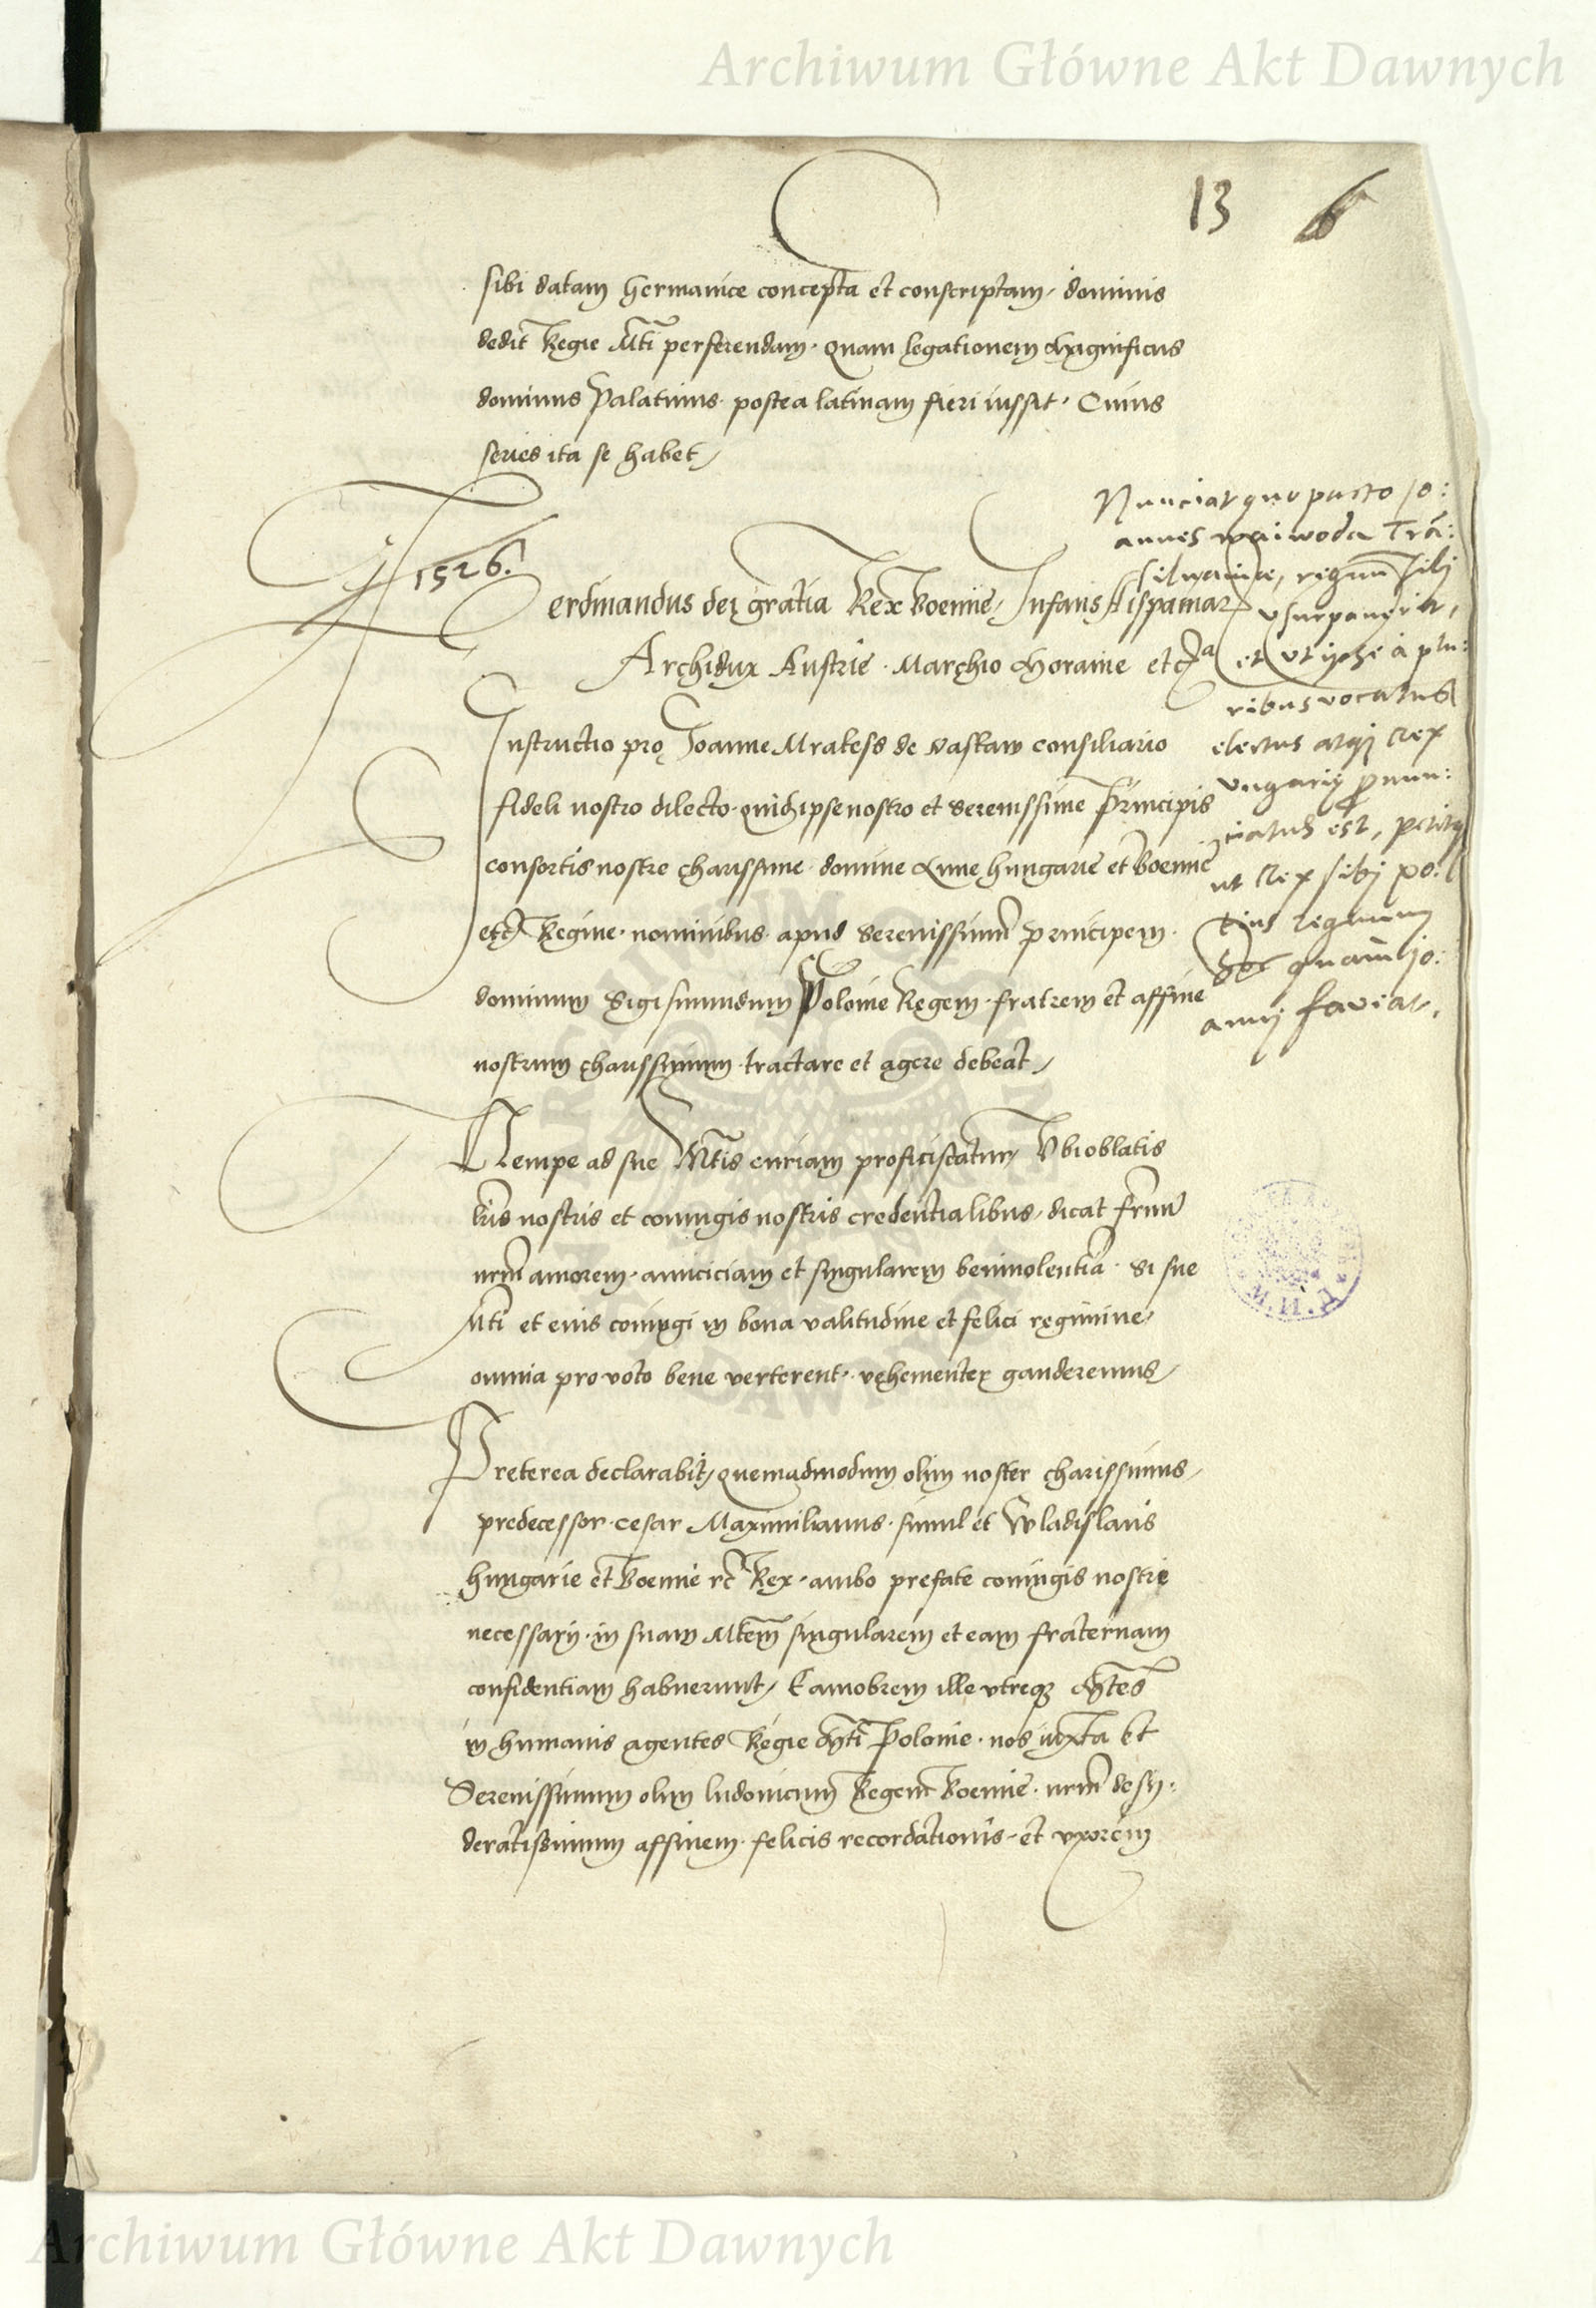 Archiwum Główne Akt Dawnych
13 6
sibi datam Germanice concepta et conscriptam, dominis
dedit Regie Mti perferendam. quam legationem Magnificus
dominus Palatinus postea latinam fieri iussit. Cuius
series ita se habet,
1526.
Ferdinandus dei gratia Rex Boemie, Infans Hispaniar
Archidux Austrie. Marchio Moravie etc
Instructio pro Joanne Mrakess de consiliario
fideli nostro dilecto. quid ipse nostro et Serenissime Principis
consortis nostre charissime domine Anne Hungarie et Boemie
etc Regine. nominibus. apud Serenissimu principem.
dominum Sigismundum Polonie Regem. fratrem et affine
nostrum charissimum. tractare et agere debeat,
Nempe ad sue Mtis curiam proficiscatur, Ubi oblatis
lris nostris et coniugis nostris credentialibus, dicat frnu
nrm amorem. amiciciam et singularem benivolentia. Si sue
Mti et eius coniugi in bona valitudine et felici regimine,
omnia pro voto bene verterent. vehementer gauderemus,
Preterea declarabit, quemadmodum olim noster charissimus,
predecessor. cesar Maximilianus. simul et Wladislaus
Hungarie et Boemie rc Rex. ambo prefate coniugis nostre
necessarij. in suam Mtem singularem et eam fraternam
confidentiam habuerunt, Eamobrem ille utreq Mtes
in humanis agentes Regie Mti Polonie. nos iuxta et
Serenissimum olim ludovicum Regem Boemie. nrm desy:
deratissimum affinem. felicis recordationis. et uxorem
Nunciat quo pacto Jo:
annes waiwoda Tra:
silvaniae, regnum sibj
usurpaverit,
et ut ipse à plu:
ribus vocatus
electus atq Rex
ungariȩ pronun:
ciatus est, petitq
ut Rex sibj po:
tius regnum
quam Jo:
annj faveat.
Archiwum Główne Akt Dawnych